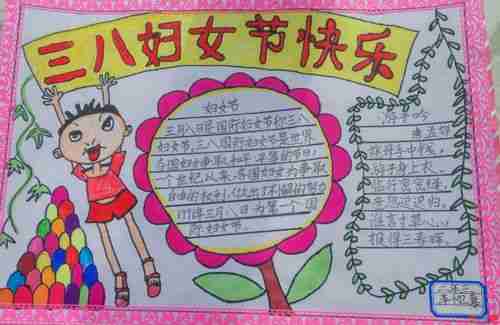 三八妇女节快乐
妇女节
三月八日是国际妇女节称三八
妇女节,三八国际妇女节是世界
各国妇女争取和平、平等的节日,
一个世纪以来,各国妇女为争取
自由的权利,做出了不懈的努力
1911年三月八日为第一个国
际妇女节。
游子吟
孟郊
慈母手中线,
游子身上衣。
临行密密缝,
意恐迟迟归。
谁言寸草心,
报得三春晖。